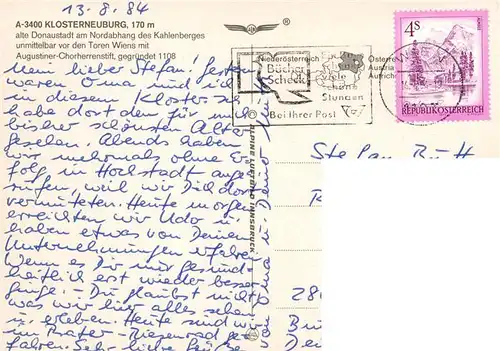 13.8.84
A-3400 KLOSTERNEUBURG, 170 m
alte Donaustadt am Nordabhang des Kahlenberges
unmittelbar vor den Toren Wiens mit
Augustiner-Chorherrenstift, gegründet 1108
Mein lieber Stefan! Gestern
waren Oma und ich
in diesem Kloster. Ich
habe dort den für mich
bisher schönsten Altar
gesehen. Abends haben
wir mehrmals ohne Er-
folg in Hochstadt ange-
rufen, weil wir Dich dort
vermuteten. Heute morgen
erreichten wir Udo u.
haben etwas von Deinen
Unternehmungen erfahren.
Wenn es Dir nur gesund-
heitlich erst wieder besser
ginge! Du glaubst nicht,
was wir hier alles sehen
u. erleben. Heute sind wir
im Prater Riesenrad ge-
fahren. Sehr liebe Grüße
ALPINE LUFTBILD INNSBRUCK
Niederösterreich
Bücher
Scheck
Bei Ihrer Post
viele
schöne
Stunden
WIEN
4S
REPUBLIK ÖSTERREICH
Stefan
28